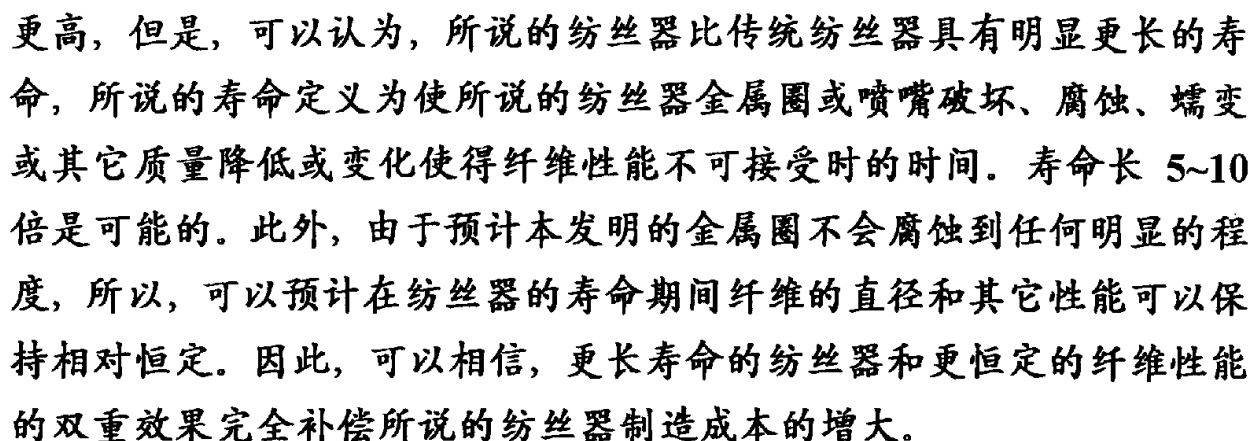 更高，但是，可以认为，所说的纺丝器比传统纺丝器具有明显更长的寿
命，所说的寿命定义为使所说的纺丝器金属圈或喷嘴破坏、腐蚀、蠕变
或其它质量降低或变化使得纤维性能不可接受时的时间。寿命长 5~10
倍是可能的。此外，由于预计本发明的金属圈不会腐蚀到任何明显的程
度，所以，可以预计在纺丝器的寿命期间纤维的直径和其它性能可以保
持相对恒定。因此，可以相信，更长寿命的纺丝器和更恒定的纤维性能
的双重效果完全补偿所说的纺丝器制造成本的增大。